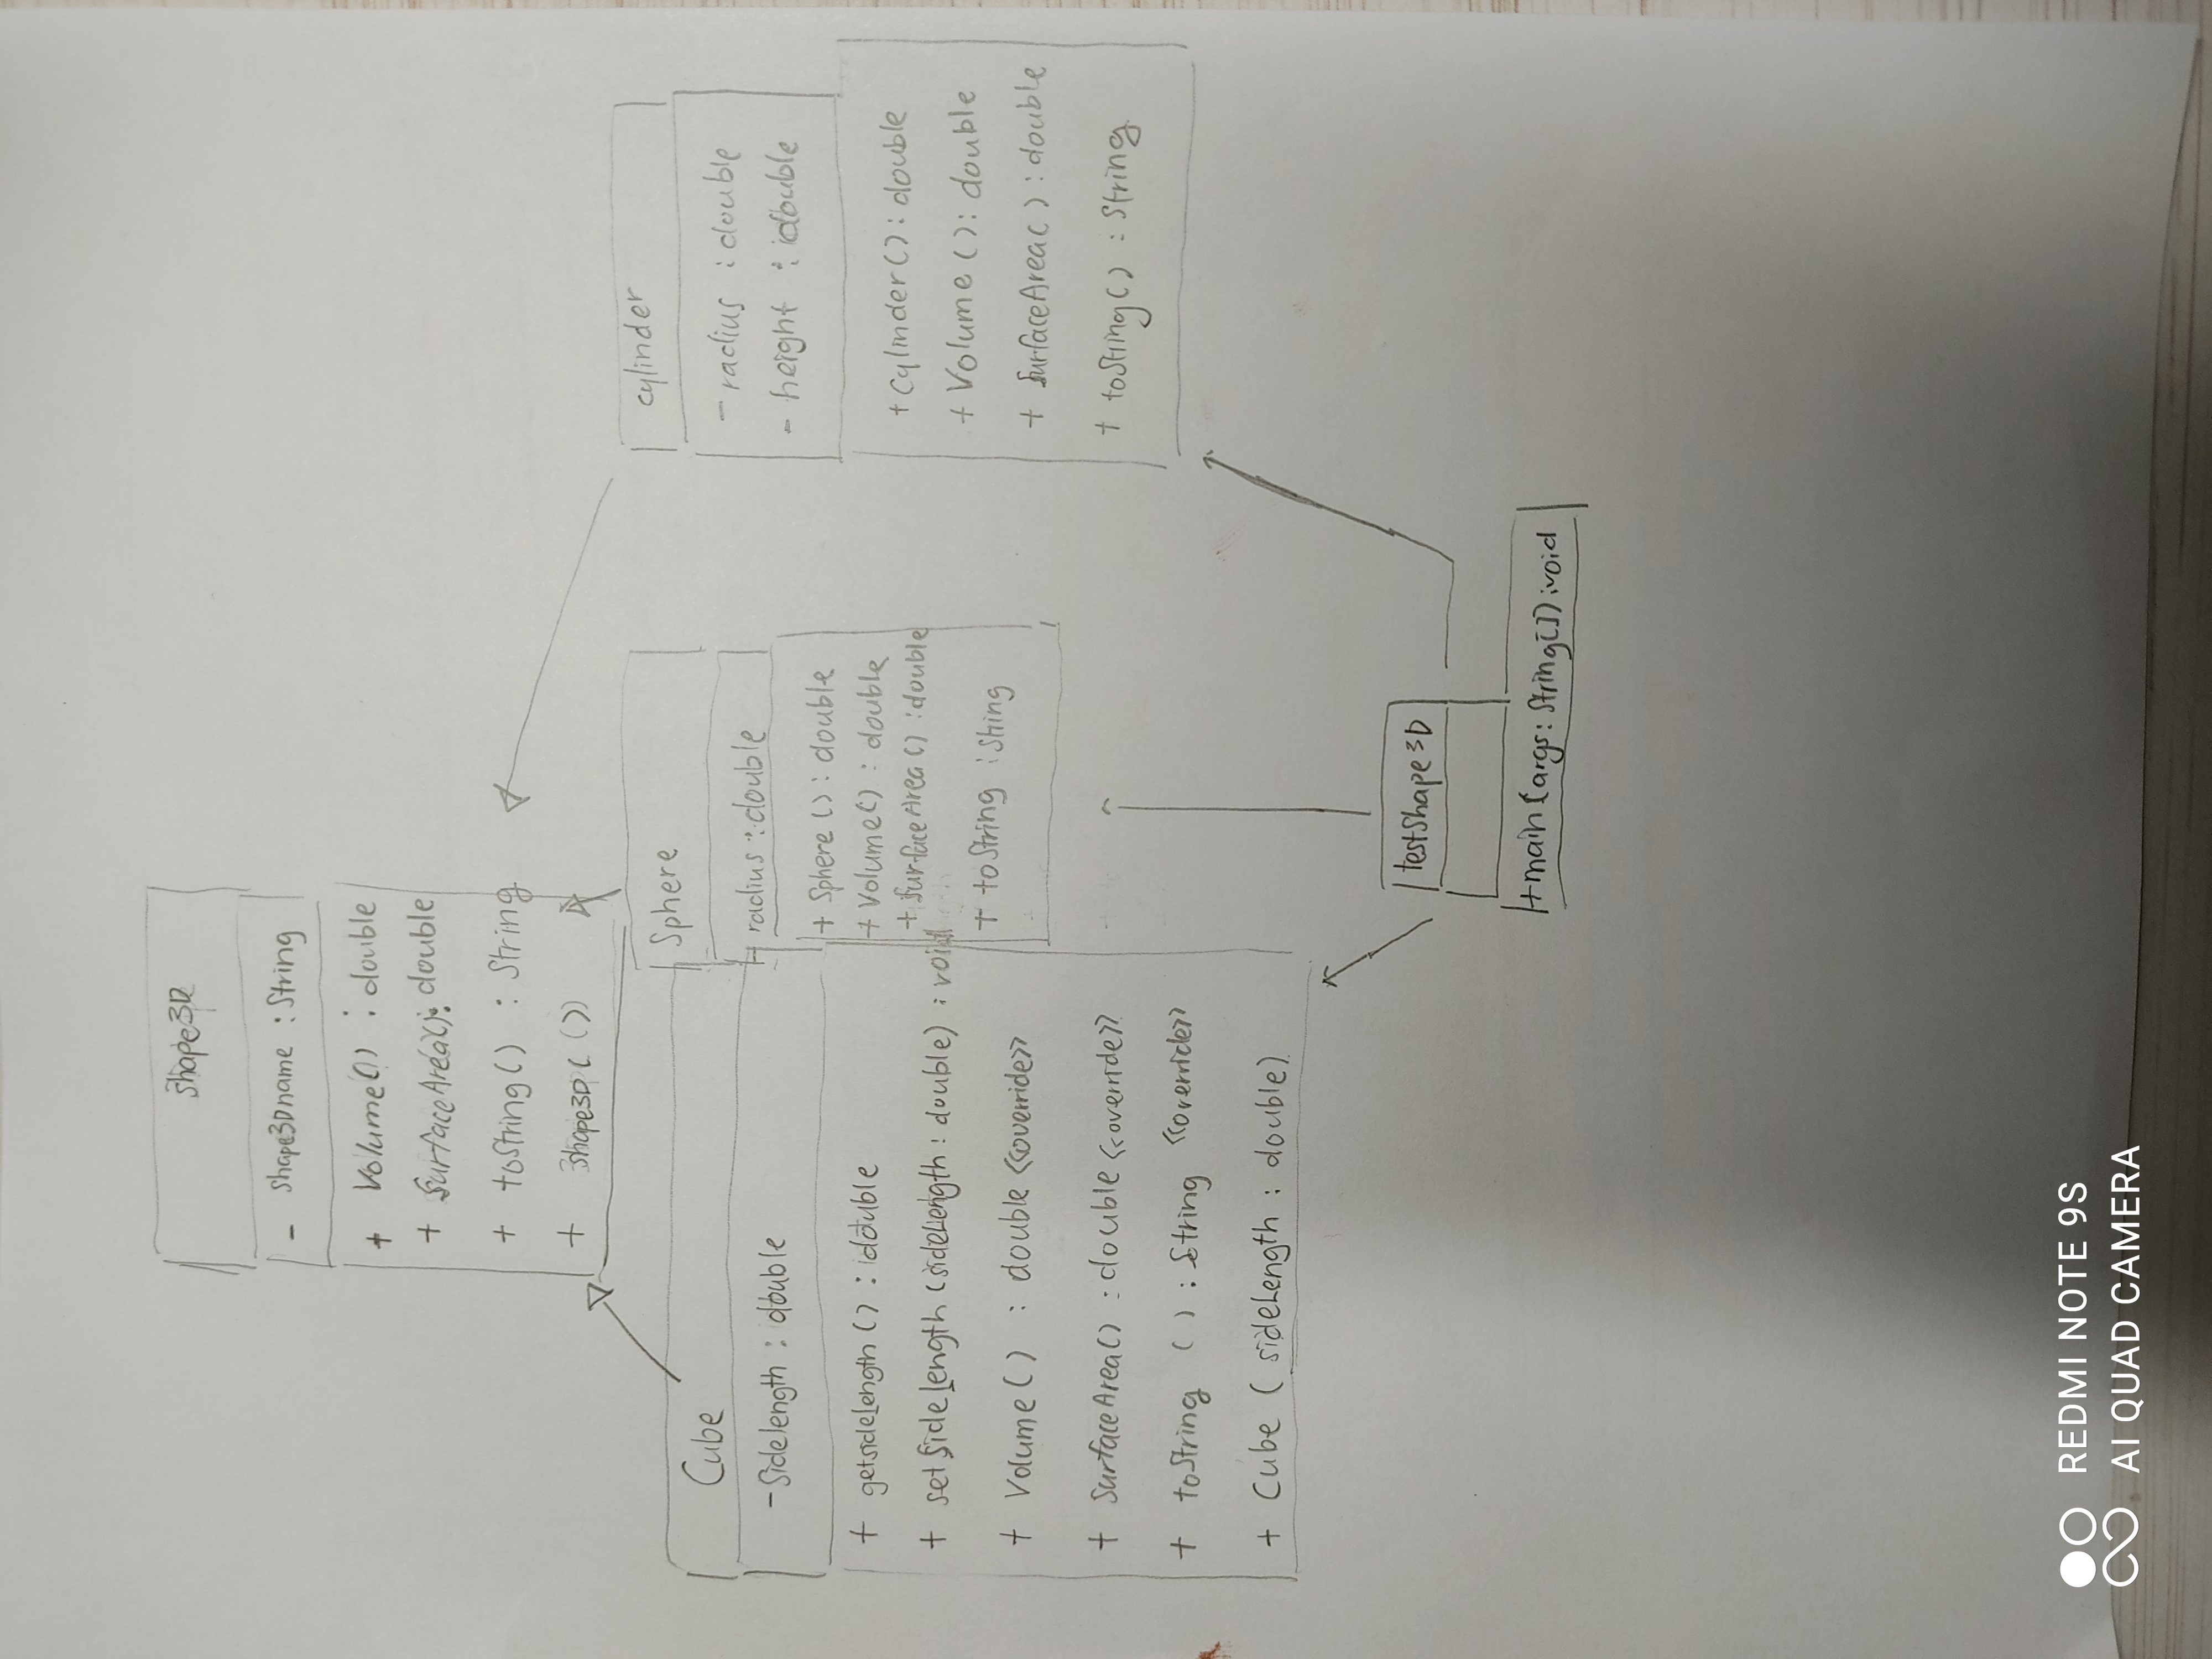 Shape3D
- Shape3Dname : String
+ Volume() : double
+ SurfaceArea(): double
+ toString() : String
+ Shape3D( ()
Cube
- Sidelength : double
+ getsideLength () : double
+ setSideLength (sideLength : double) : void
+ Volume() : double <<override>>
+ SurfaceArea() : double <<override>>
+ toString () : String <<override>>
+ Cube ( sideLength : double)
Sphere
- radius : double
+ Sphere () : double
+ Volume() : double
+ SurfaceArea () : double
+ toString : String
cylinder
- radius : double
- height : double
+ Cylinder() : double
+ Volume () : double
+ SurfaceArea( ) : double
+ toString() : String
testShape3D
+main(args: String[]) :void
REDMI NOTE 9S
AI QUAD CAMERA